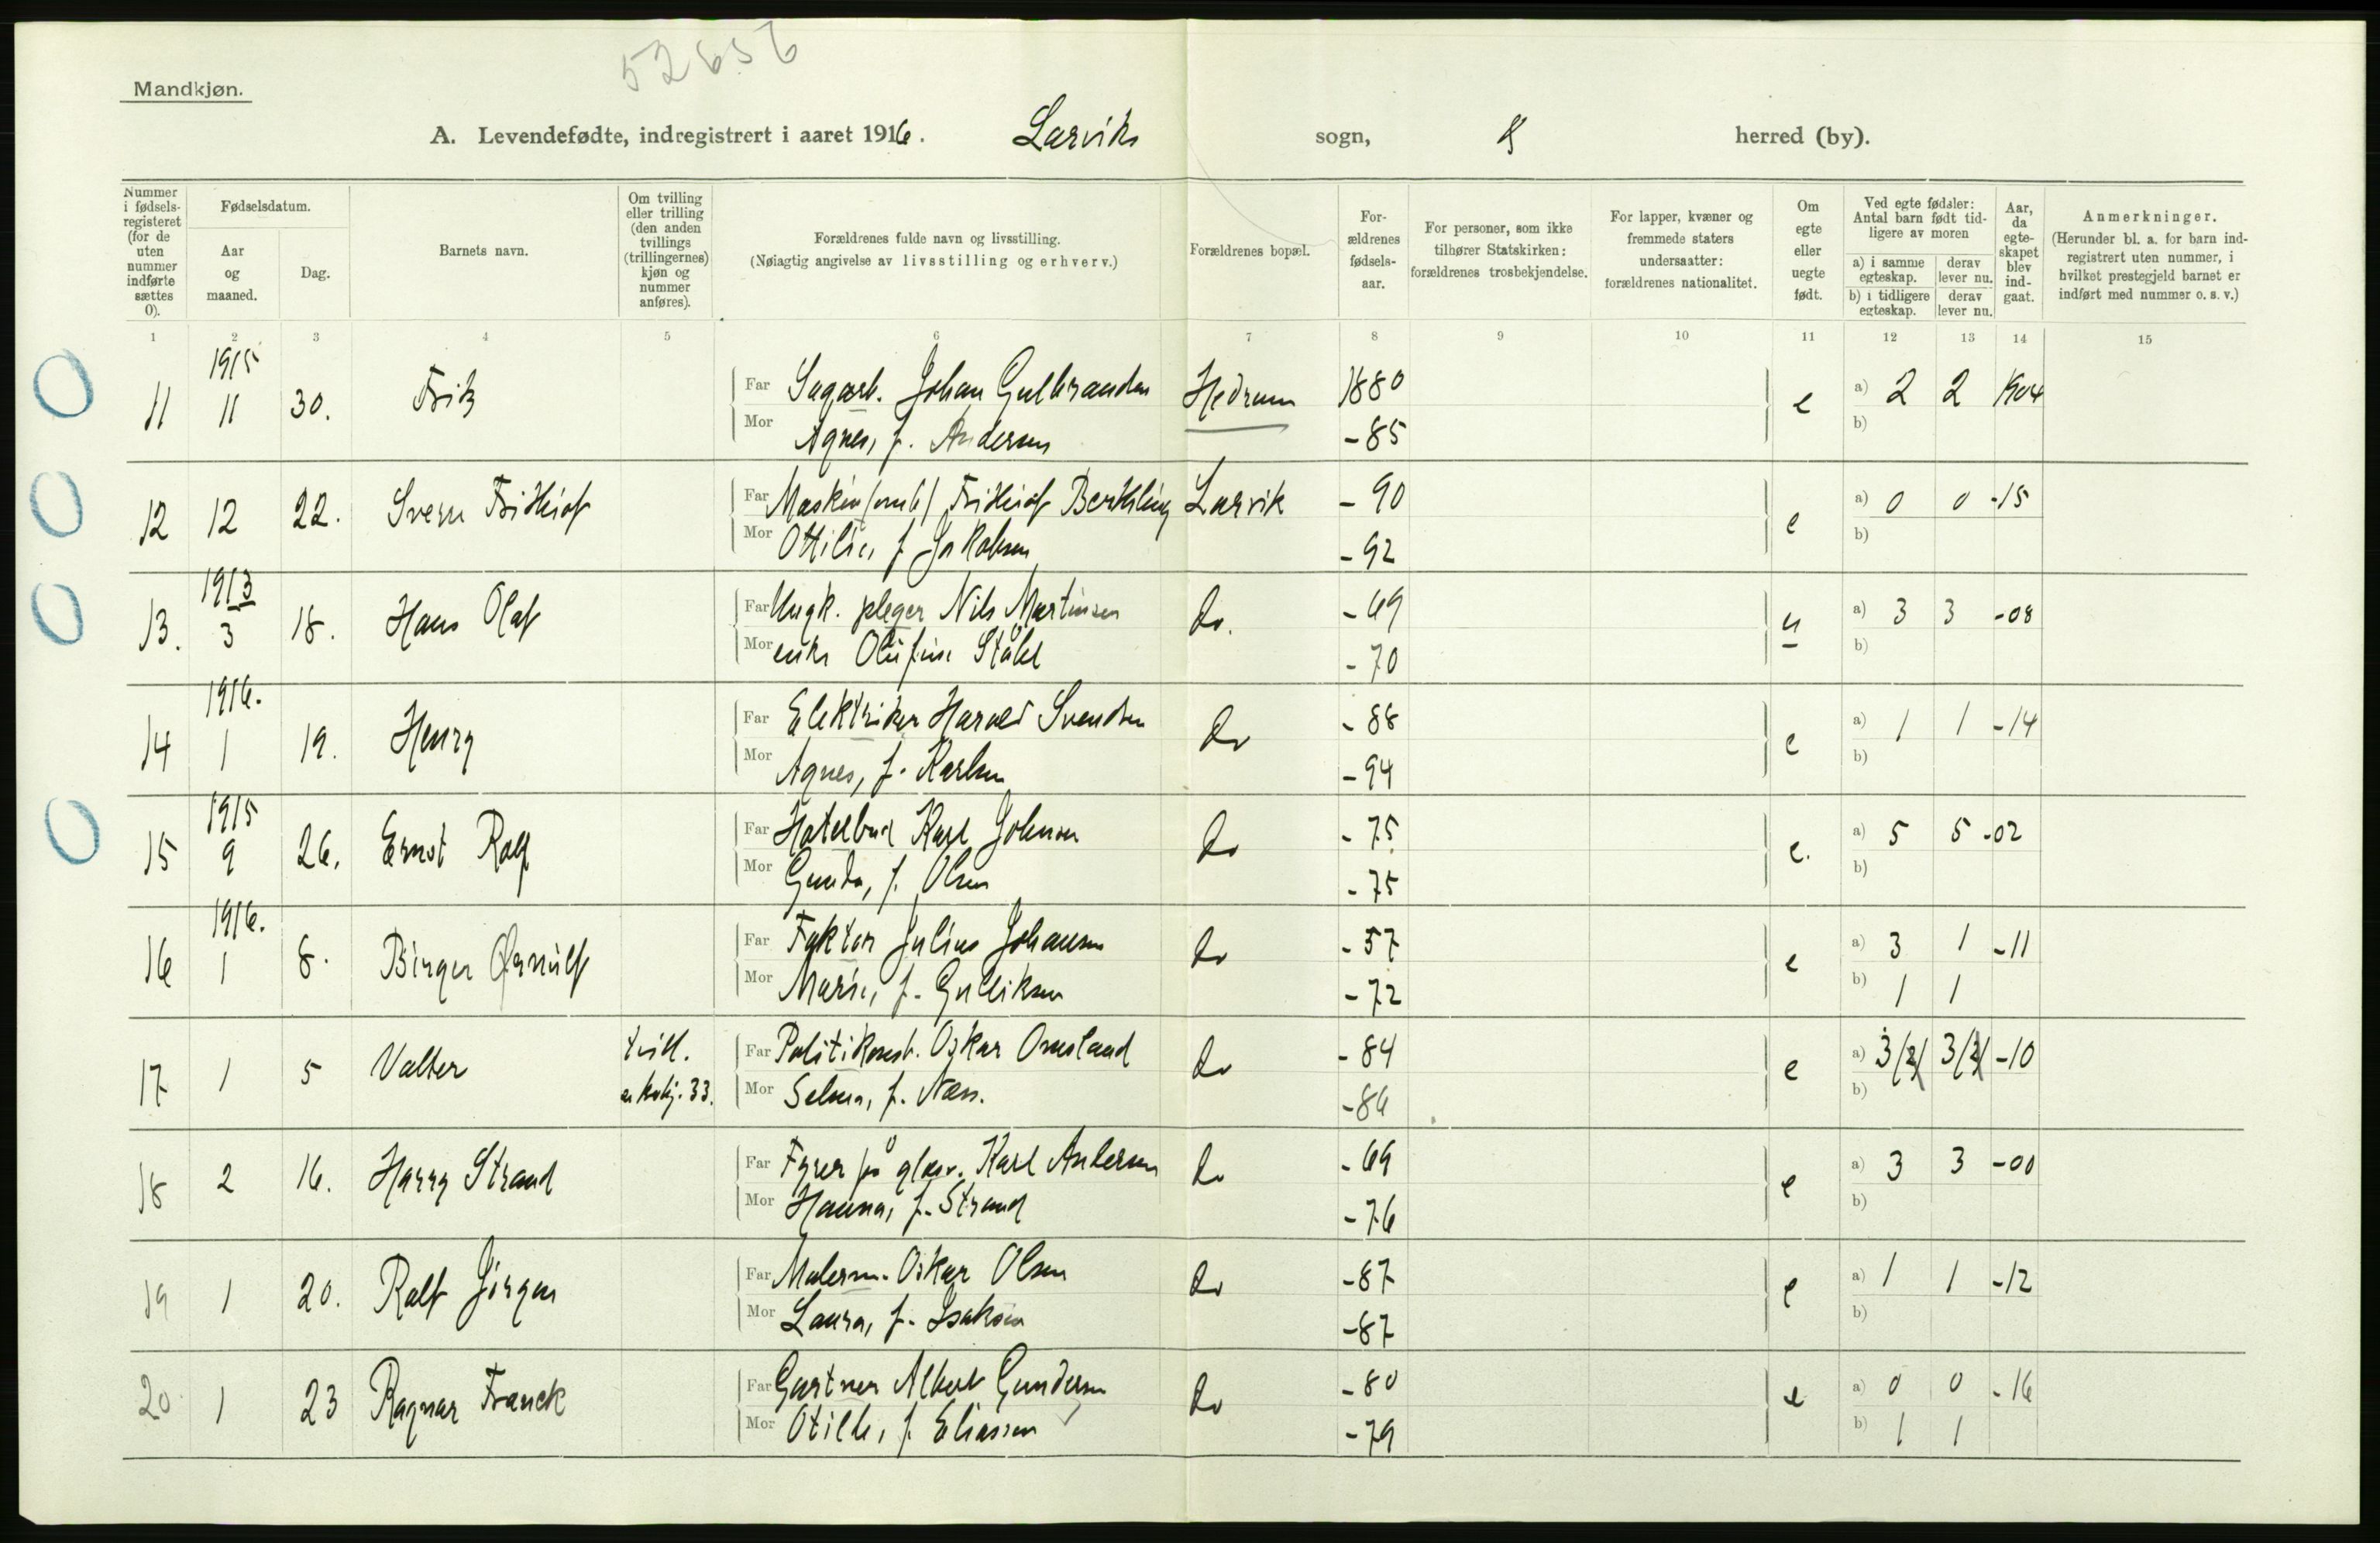 52656
Mandkjøn.
A. Levendefødte, indregistrert i aaret 1916. Larviks sogn, herred (by).
Nummer i fødsels-registeret (for de uten nummer indførte sættes 0).
Fødselsdatum.
Aar og maaned.
Dag.
Barnets navn.
Om tvilling eller trilling (den anden tvillings (trillingernes) kjøn og nummer anføres).
Forældrenes fulde navn og livsstilling.
(Nøiagtig angivelse av livsstilling og erhverv.)
Forældrenes bopæl.
For-ældrenes fødsels-aar.
For personer, som ikke tilhører Statskirken: forældrenes trosbekjendelse.
For lapper, kvæner og fremmede staters undersaatter: forældrenes nationalitet.
Om egte eller uegte født.
Ved egte fødsler: Antal barn født tid-ligere av moren
a) i samme egteskap. derav lever nu.
b) i tidligere egteskap. derav lever nu.
Aar, da egte-skapet blev ind-gaat.
Anmerkninger.
(Herunder bl. a. for barn ind-registrert uten nummer, i hvilket prestegjeld barnet er indført med nummer o. s. v.)
1 2 3 4 5 6 7 8 9 10 11 12 13 14 15
1915
11 11 30. Fritz Far Sagarb. Johan Gulbrandsen Hedrum 1880 e a) 2 2 1904
Mor Agnes, f. Andersen -85 b)
12 12 22. Sverre Fridthiof Far Maskin Fridthiof Berthling Larvik -90 e a) 0 0 -15
Mor Ottilie, f. Jakobsen -92 b)
1913
13. 3 18. Hans Olaf Far Ungk. pleger Nils Martinsen do. -69 u a) 3 3 -08
Mor enke Olufine Ståhl -70 b)
1916.
14 1 19. Henry Far Elektriker Harald Svendsen do -88 e a) 1 1 -14
Mor Agnes, f. Karlsen -94 b)
1915
15 9 26. Ernst Rolf Far Hotelbud Karl Johnsen do -75 e. a) 5 5 -02
Mor Gunda, f. Olsen -75 b)
1916.
16 1 8. Birger Ørnulf Far Faktor Julius Johansen do -57 e a) 3 1 -11
Mor Marie, f. Gulliksen -72 b) 1 1
17 1 5 Valter tvill. Far Politikonst. Oskar Omsland do -84 e a) 3/2/ 3/2/ -10
kvkj. 33. Mor Selma, f. Næss. -86 b)
18 2 16. Harry Strand Far Fyrer på glasv. Karl Andersen do -69 e a) 3 3 -00
Mor Hanna, f. Strand -76 b)
19 1 20. Rolf Jörgen Far Malerm. Oskar Olsen do -87 e a) 1 1 -12
Mor Laura, f. Isaksen -87 b)
20 1 23 Ragnar Franck Far Gartner Albert Gundersen do -80 e a) 0 0 -16
Mor Otilde, f. Eliassen -79 b) 1 1